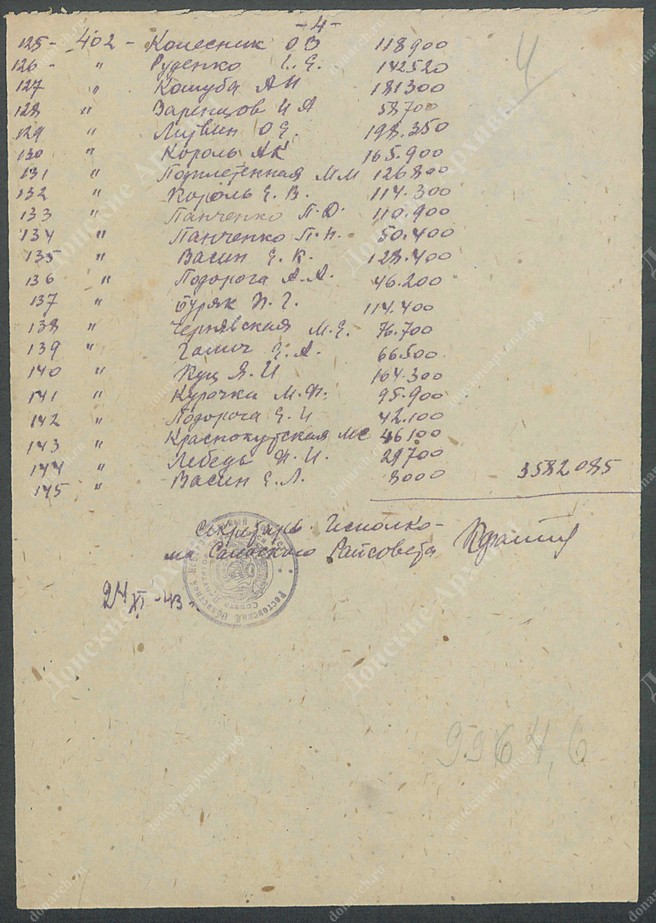 -4-
4
125 - 402 - Колесник О В 118900
126 - " Руденко Е. Е. 142520
127 " Кошуба А И 181300
128 " Варенцов И А 58700
129 " Литвин О Е. 198.350
130 " Король А К 165.900
131 " Подплетенная М М 126800
132 " Король Е. В. 114.300
133 " Панченко П. Д. 110.900
134 " Панченко П. Н. 50.400
135 " Васин Е. К. 128.400
136 " Подорога А. А. 46.200
137 " Буряк П. Г. 114.400
138 " Чернявская М. Е. 76.700
139 " Галич Е. А. 66.500
140 " Куц Я. И 164.300
141 " Курочка М. Ф. 95.900
142 " Подорога Е. И 42.100
143 " Краснокутская М С 46100
144 " Лебедь Н. И. 29700 3582085
145 " Васин Е. Л. 8000
Секретарь Исполко-
ма Самбекского Райсовета
24 XI - 43
9964,6